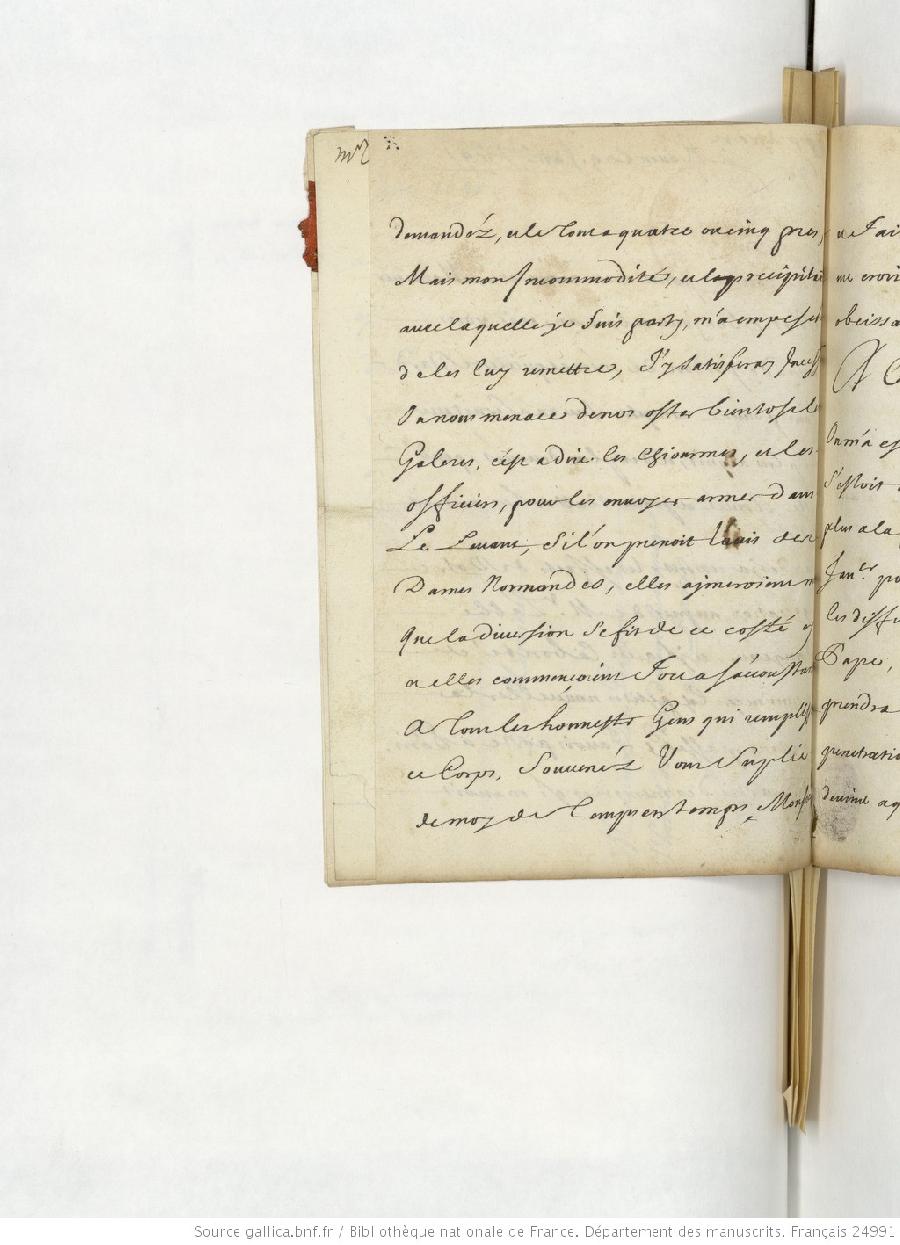 demandéz, et le tout a quatre ou cinq pres,
Mais mon Incommodité, et la precipita
avec laquelle je suis party, m'a empesch
de les luy remettre, J'y satisferay Incess
On nous menace de nos oster bientost le
Galeres, c'est a dire les Chiourmes, et les
officiers, pour les envoyer armer dans
Le Levant, Si l'on prenoit l'avis des
Dames Normandes, elles aymeroient m
que la diversion se fit de ce costé
et elles commencoient fort a s'accoustum
A tous les honnestes Gens qui rempliss
ce Corps, Souvenéz Vous Suplie
de moy de temps en temps, Mons
ne Jai
me croi
obeissa
A
On m'a es
s'estoit
plus a la
Janer po
les diffe
Pape,
prendra
penetratio
devine aq
Source gallica.bnf.fr / Bibliothèque nationale de France. Département des manuscrits. Français 24991